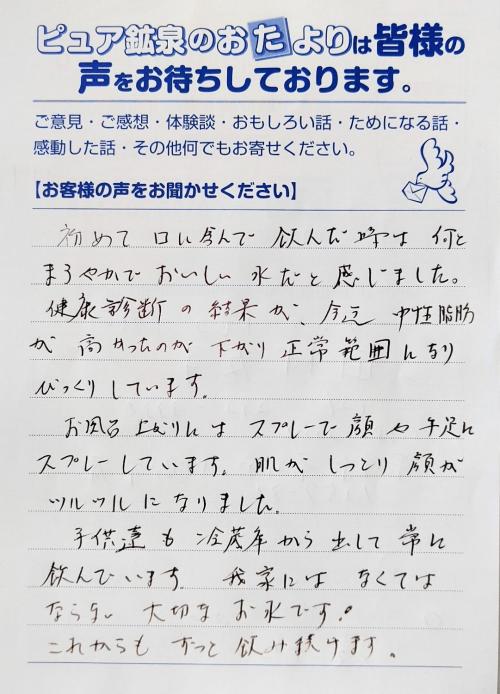 ピュア鉱泉のおたよりは皆様の
声をお待ちしております。
ご意見・ご感想・体験談・おもしろい話・ためになる話・
感動した話・その他何でもお寄せください。
【お客様の声をお聞かせください】
初めて口に含んで飲んだ時は何と
まろやかでおいしい水だと感じました。
健康診断の結果が、今迄中性脂肪
が高かったのが下がり正常範囲になり
びっくりしています。
お風呂上がりにはスプレーで顔や手足に
スプレーしています。肌がしっとり顔が
ツルツルになりました。
子供達も冷蔵庫から出して常に
飲んでいます。我家にはなくては
ならない大切なお水です!
これからもずっと飲み続けます。